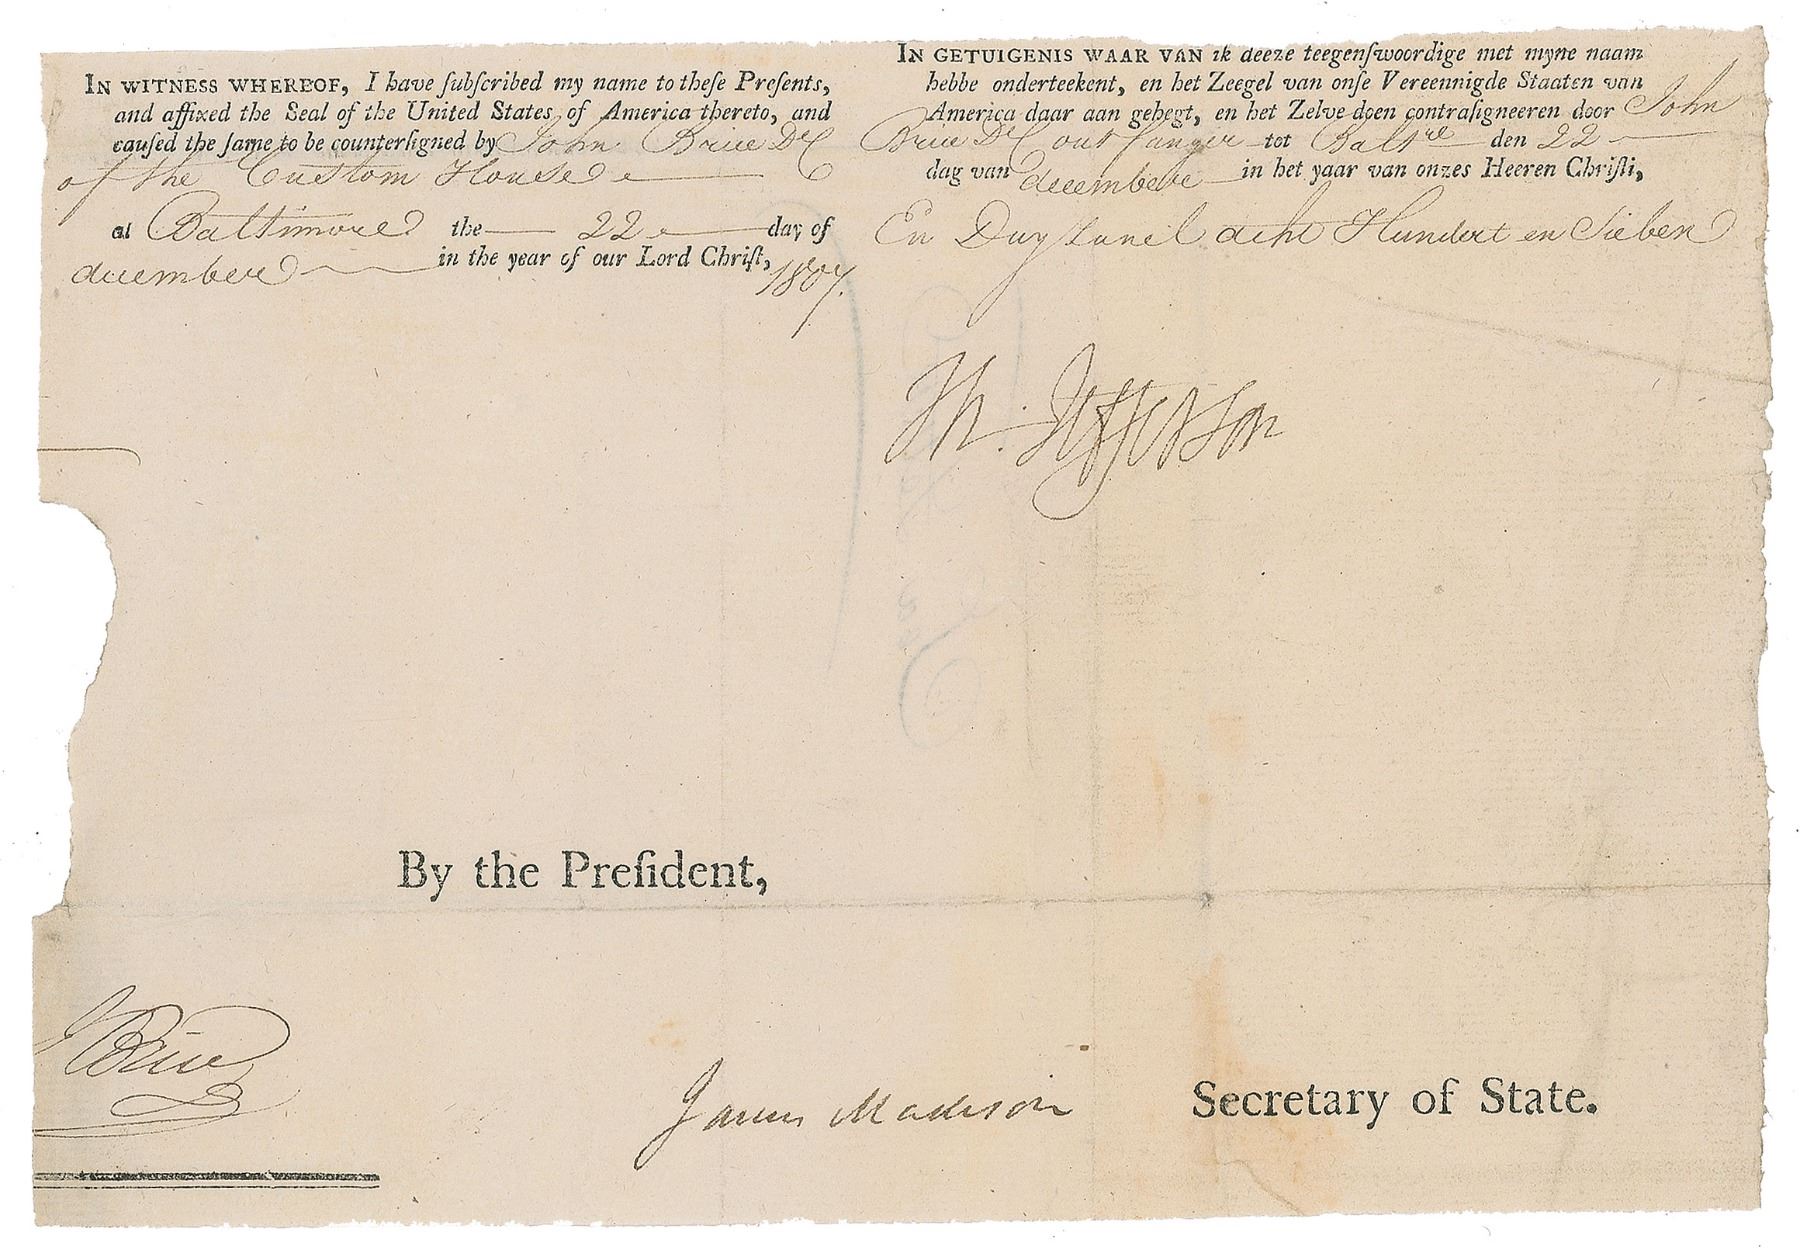 IN WITNESS WHEREOF, I have ſubſcribed my name to theſe Preſents,
and affixed the Seal of the United States of America thereto, and
cauſed the ſame to be counterſigned by John Brice DC
of the Custom House
at Baltimore the 22 day of
december in the year of our Lord Chriſt, 1807.
IN GETUIGENIS WAAR VAN ik deeze teegenſwoordige met myne naam
hebbe onderteekent, en het Zeegel van onſe Vereennigde Staaten van
America daar aan gehegt, en het Zelve doen contraſigneeren door John
Brice DC ont fanger tot Baltre den 22
dag van decembere in het yaar van onzes Heeren Chriſti,
En Duysend acht Hundert en Sieben
Th. Jefferson
By the Preſident,
JBrice
James Madison Secretary of State.